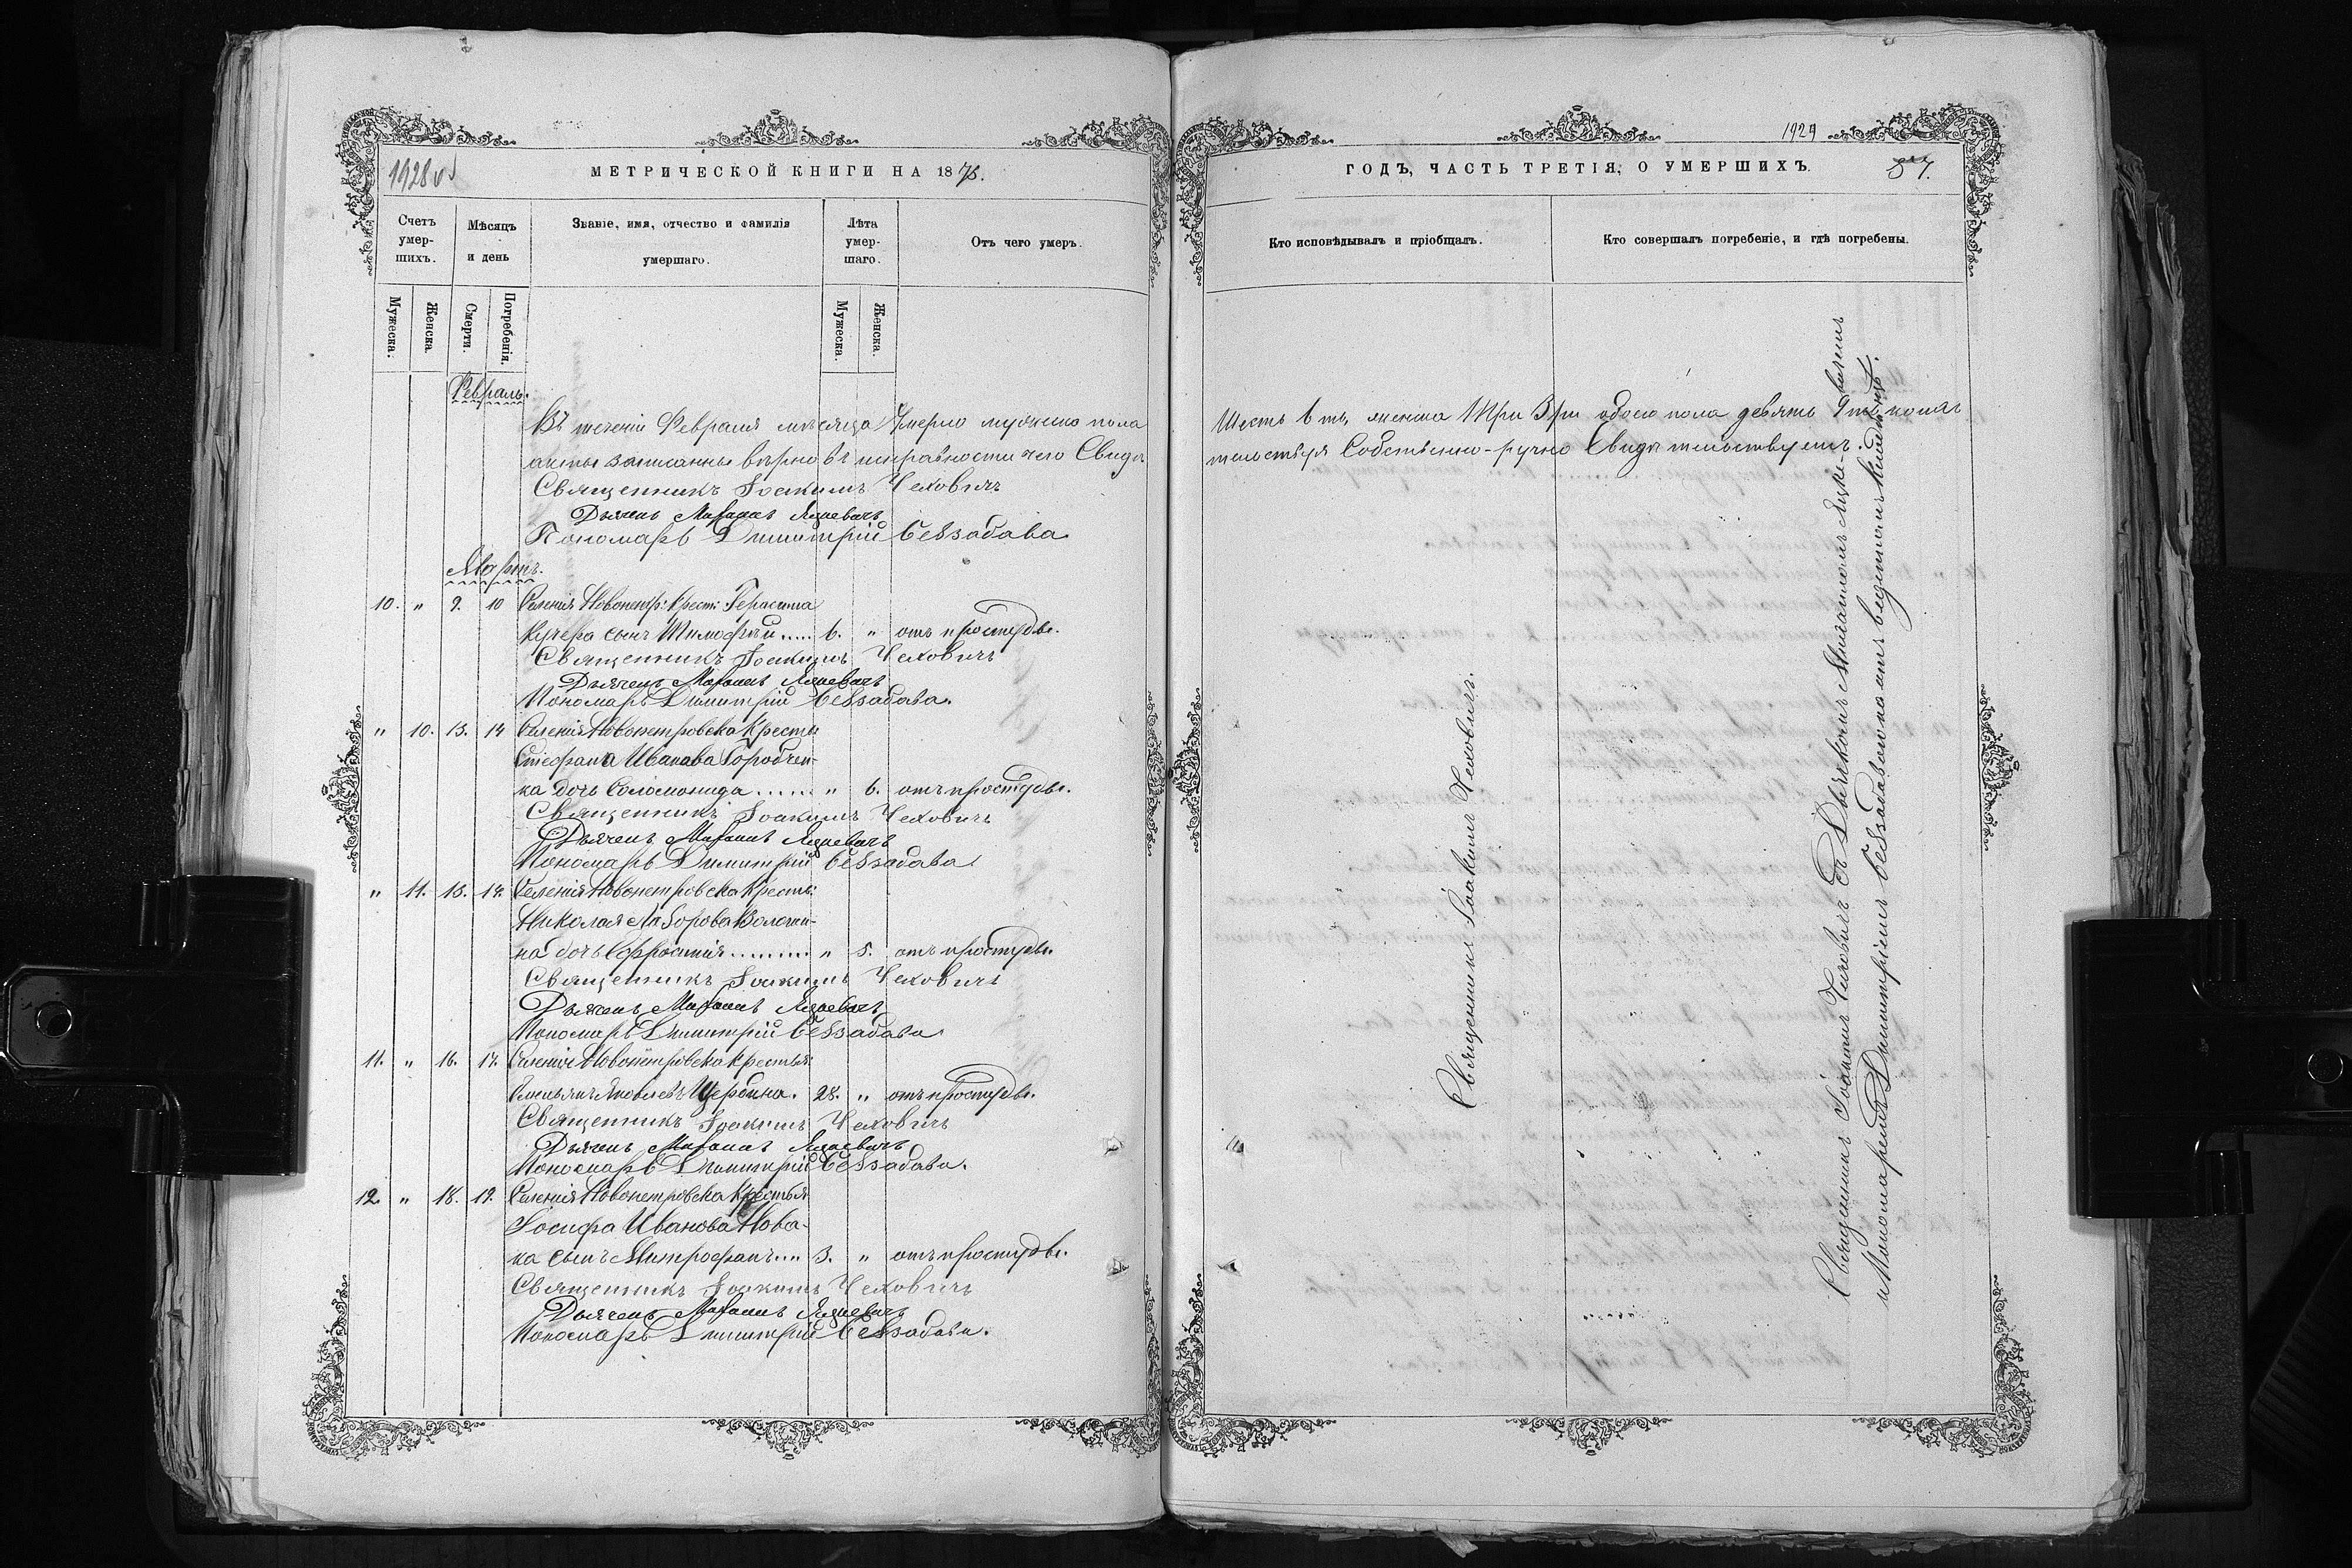 1928 об
МЕТРИЧЕСКОЙ КНИГИ НА 1875.
Счетъ умер-шихъ.
Мѣсяцъ и день
Званіе, имя, отчество и фамилія умершаго.
Лѣта умер-шаго.
Отъ чего умеръ.
Мужеска.
Женска.
Смерти.
Погребенія.
Мужеска.
Женска.
Февраль.
Въ теченіи Февраля мѣсяца Умерло мужеска пола
акты записанны вѣрно въ исправности чего Свидѣ
Священникъ Іоакимъ Чеховичъ
Дьячекъ Михаилъ
Пономарь Димитрій Беззабава
Мартъ.
10. " 9. 10 Селенія Новопетр: Крест: Герасима
Кучера сынъ Тимофѣй ..... 6. " отъ простуды.
Священникъ Іоакимъ Чеховичъ
Дьячекъ Михаилъ
Пономарь Димитрій Беззабава.
" 10. 13. 14 Селенія Новопетровска Кресть:
Стефана Иванова Горобчен-
ка дочь Соломонида ....... " 6. отъ простуды.
Священникъ Іоакимъ Чеховичъ
Дьячекъ Михаилъ
Пономарь Димитрій Беззабава
" 11. 13. 14. Селенія Новопетровска Кресть:
Николая
на дочь Евфросинія .......... " 5. отъ простуды.
Священникъ Іоакимъ Чеховичъ
Дьячекъ Михаилъ
Пономарь Димитрій Беззабава
11. " 16. 17. Селенія Новопетровска Крестья:
Емельянъ Яковлевъ Щербина. 28. " отъ простуды.
Священникъ Іоакимъ Чеховичъ
Дьячекъ Михаилъ
Пономарь Димитрій Беззабава.
12. " 18. 19. Селенія Новопетровска Крестья
Іосифа Иванова Нова-
ка сынъ Митрофанъ.... 3. " отъ простуды.
Священникъ Іоакимъ Чеховичъ
Дьячекъ Михаилъ
Пономарь Димитрій Беззабава.
1929
ГОДЪ, ЧАСТЬ ТРЕТІЯ, О УМЕРШИХЪ.
Кто исповѣдывалъ и пріобщалъ.
Кто совершалъ погребеніе, и гдѣ погребены.
Шесть 6 ть, женска Три 3 ри обоего пола девять 9 ть
тельствуя Собственно-ручно Свидѣтельствуемъ.
Священникъ Іоакимъ Чеховичъ.
Священникъ Іоакимъ Чеховичъ съ Дьячкомъ Михаиломъ
и Пономаремъ Димитріемъ Беззабавою на